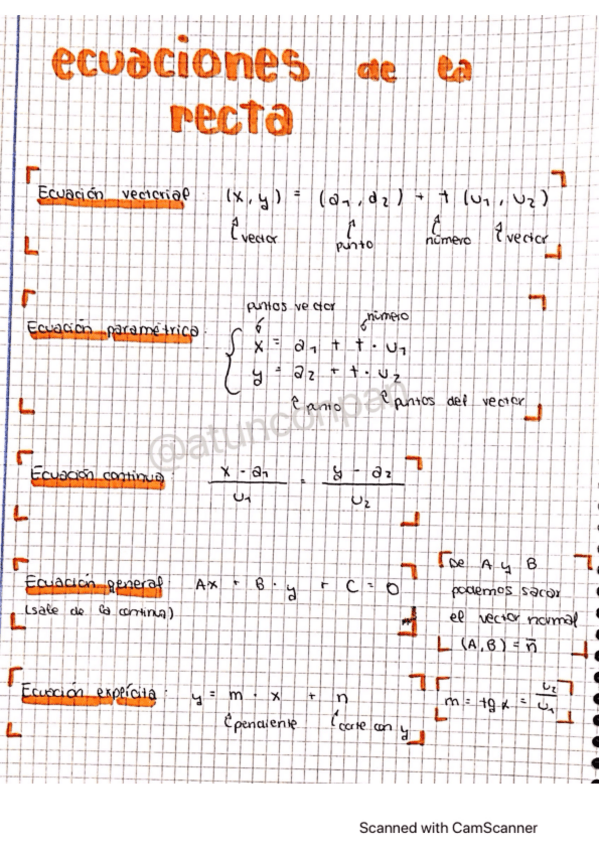 ecuaciones de la
recta
Ecuación vectorial (x, y) = (a₁, a₂) + t (u₁, u₂)
vector punto número vector
puntos vector número
Ecuación paramétrica x = a₁ + t · u₁
y = a₂ + t · u₂
punto puntos del vector
@atunconpan
Ecuación continua x - a₁ / u₁ = y - a₂ / u₂
Ecuación general Ax + B · y + C = 0
(sale de la continua)
De A y B
podemos sacar
el vector normal
(A, B) = n̄
Ecuación explícita: y = m · x + n
pendiente corte con y
m = tg α = u₂ / u₁
Scanned with CamScanner